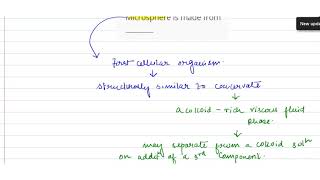 Microsphere is made from
New upda
First cellular organism.
structurally similar to coacervate
a colloid - rich viscous fluid
phase.
may separate from a colloid soln
on addn of a 3rd component.